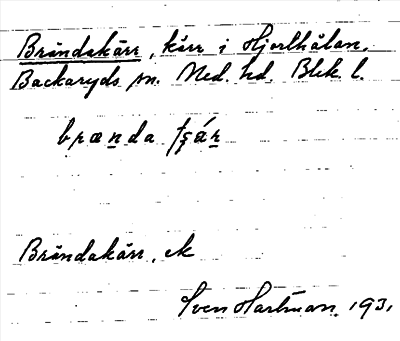 Brändakärr, kärr i Hjorthålan.
Backaryds sn. Med. hd. Blek. l.
brænda
Brändakärr, ek
Sven Hartman, 1931